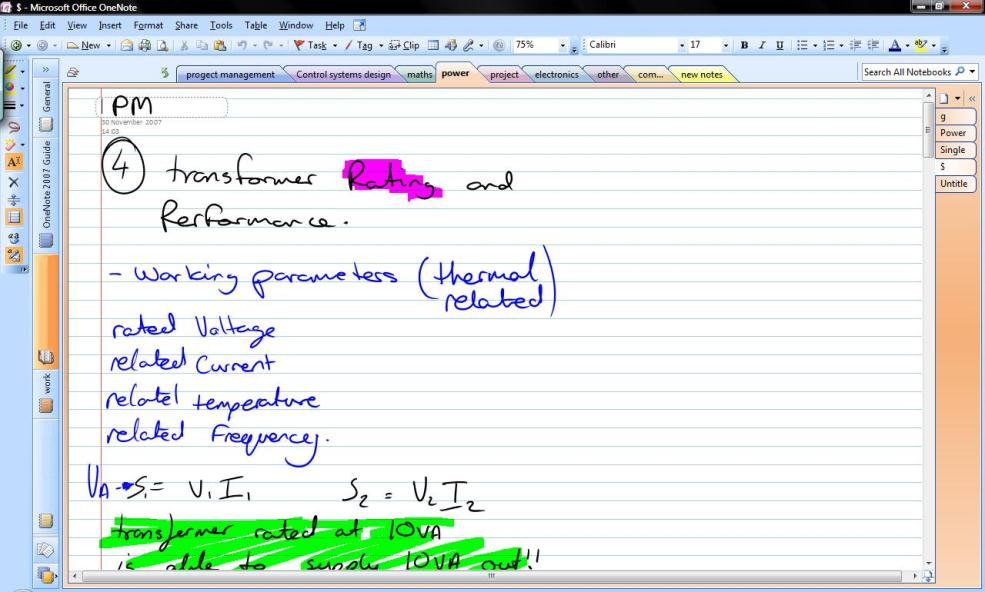 $ - Microsoft Office OneNote
File Edit View Insert Format Share Tools Table Window Help
New Task Tag Clip 75% Calibri 17 B I U A
progect management Control systems design maths power project electronics other com... new notes Search All Notebooks
General
OneNote 2007 Guide
work
g
Power
Single
$
Untitle
PM
30 November 2007
14:03
4 transformer Rating and
Performance.
- Working parameters (thermal
related)
rated Voltage
related Current
relatel temperature
related Frequency.
VA → S₁ = V₁ I₁ S₂ = V₂ I₂
transfermer rated at 10VA
is able to supply 10VA out!!